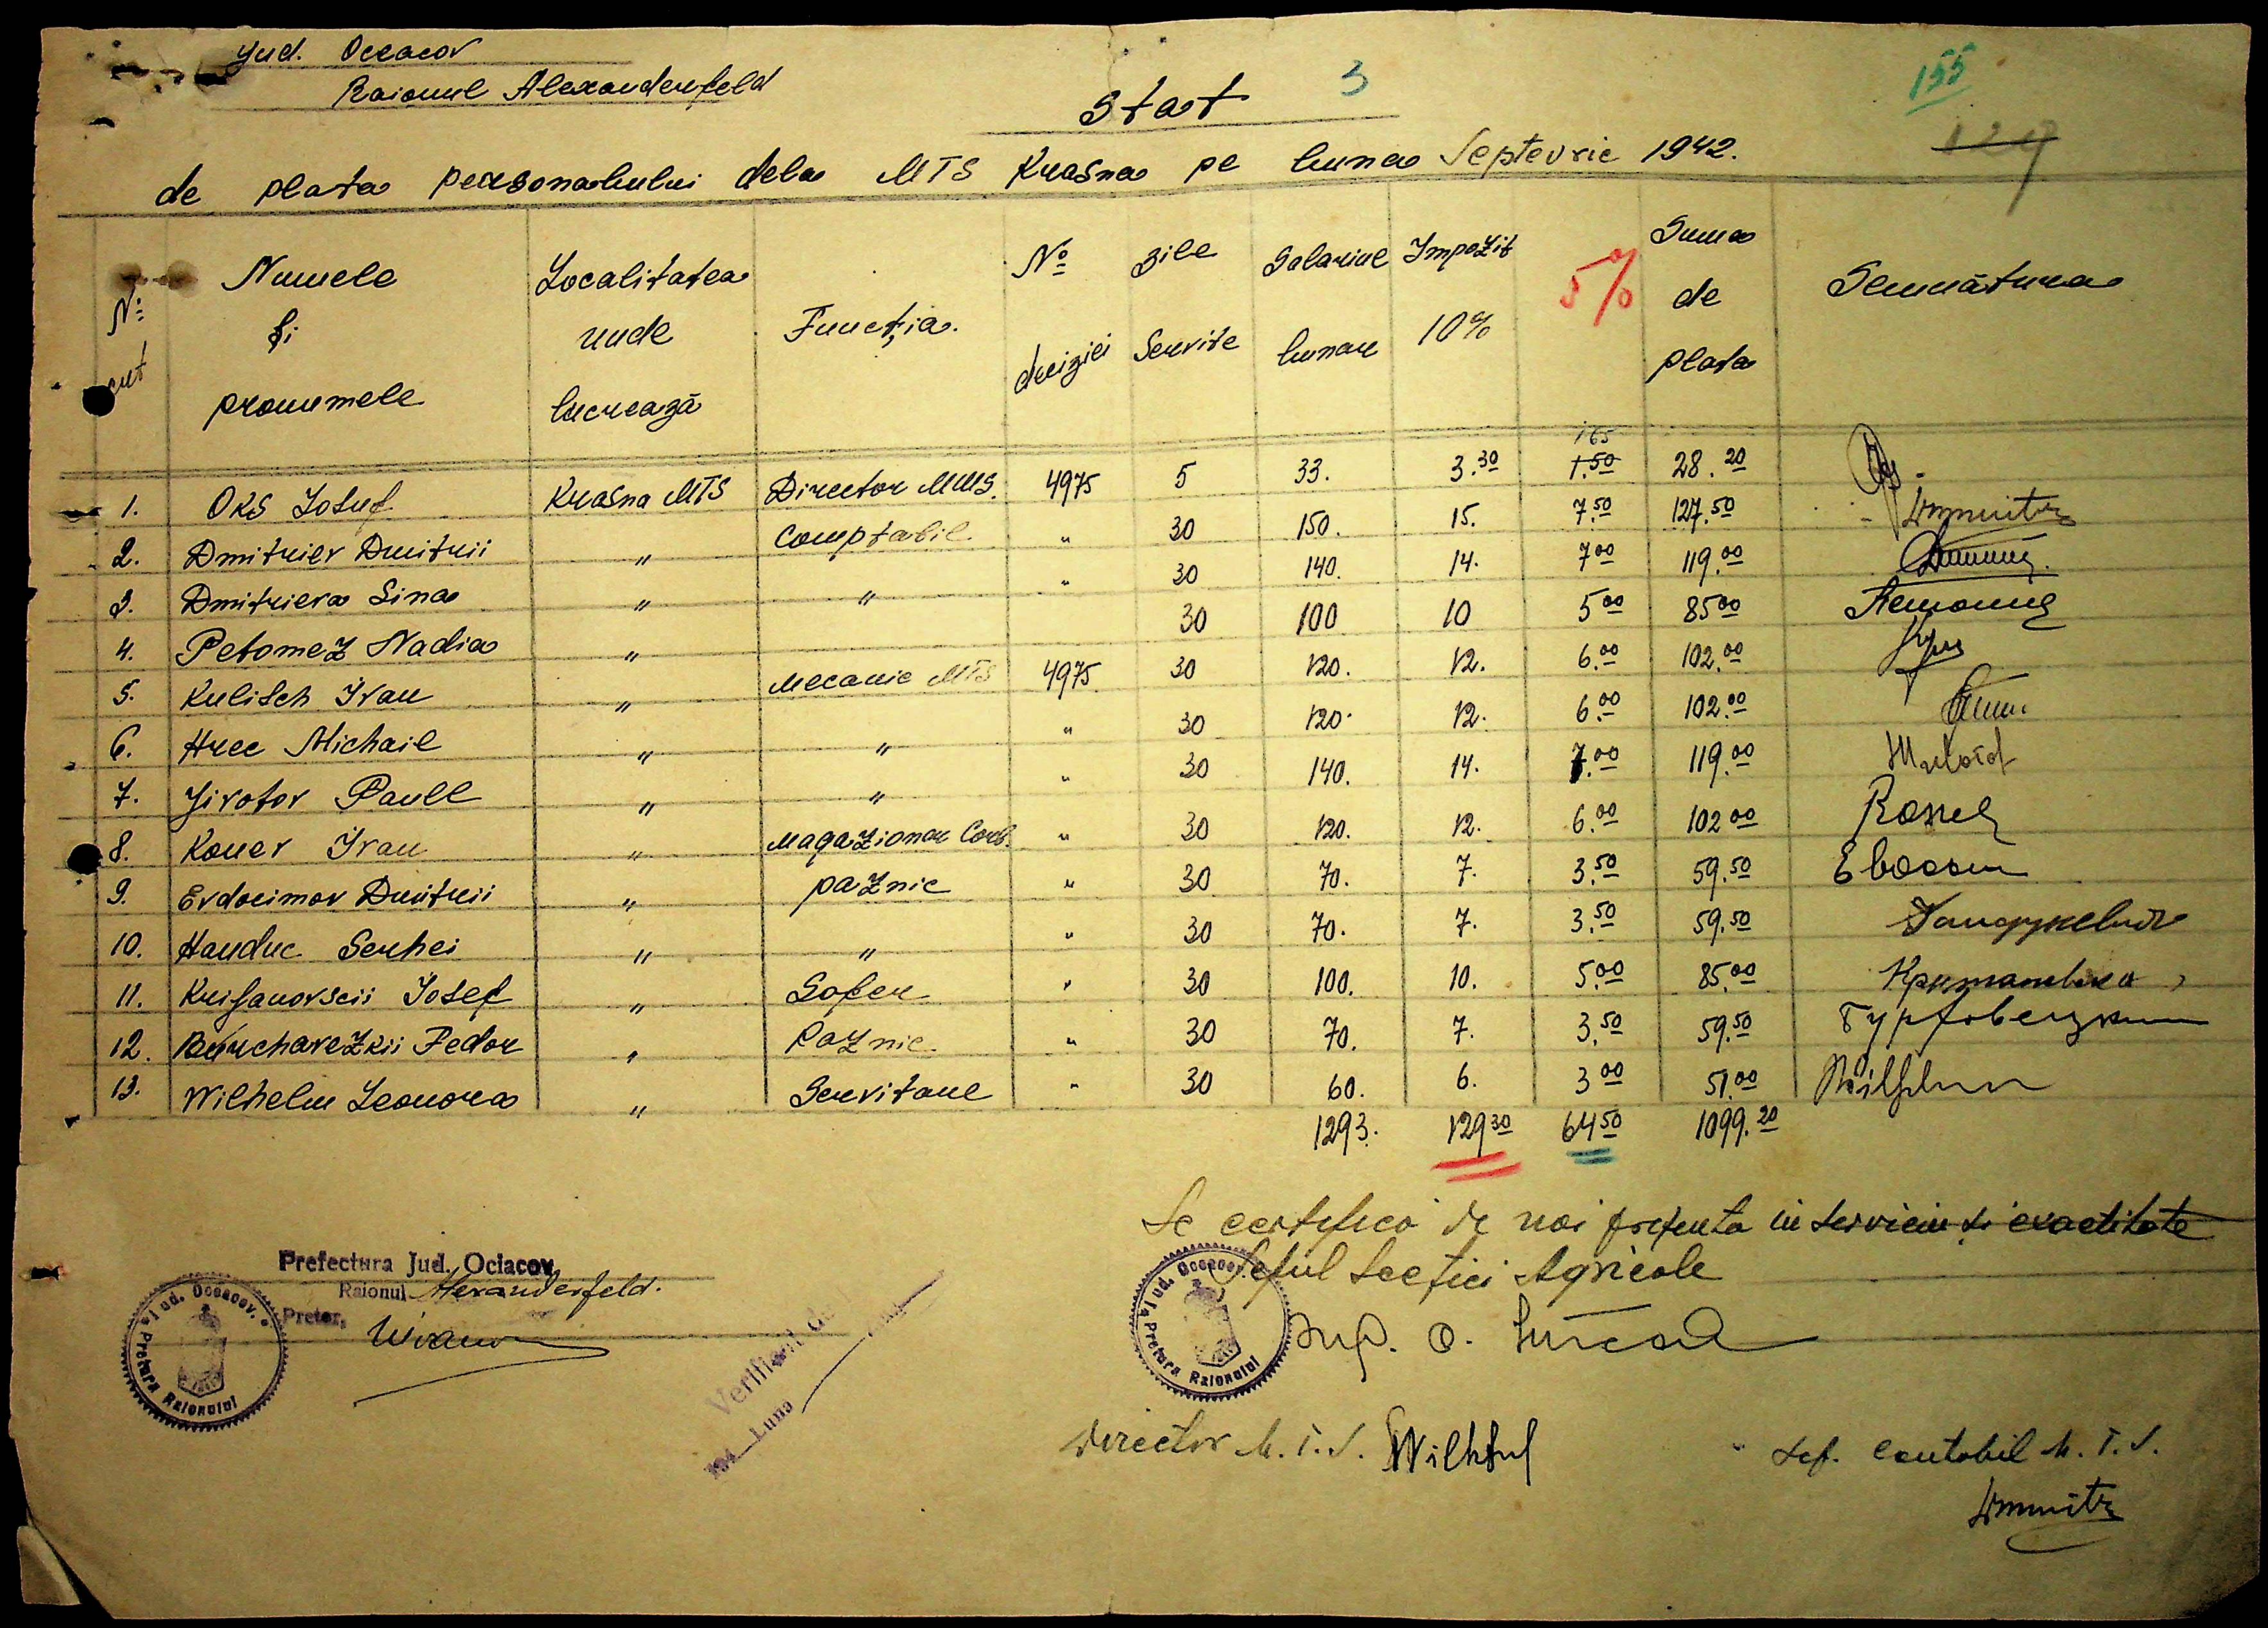 Jud. Oceacov
Raionul Alexanderfeld
3
155
127
Stat
de plata personalului dela MTS Krasna pe luna Septevrie 1942.
No crt | Numele și pronumele | Localitatea unde lucrează | Funcția. | No deciziei | Zile Servite | Salariul lunar | Impozit 10% | 5% | Suma de plata | Semnătura
165
1. Oks Iosef Krasna MTS Director MMS. 4975 5 33. 3.30 1.50 28.20
2. Dmitriev Dmitrii " Comptabil " 30 150. 15. 7.50 127.50 Dmmitr
3. Dmitrieva Lina " " " 30 140. 14. 7.00 119.00
4. Petomez Nadia " 30 100 10 5.00 85.00
5. Kulisch Ivan " Mecanic MTS 4975 30 120. 12. 6.00 102.00
6. Hrec Michail " " " 30 120. 12. 6.00 102.00
7. Jivotov Paull " " " 30 140. 14. 7.00 119.00
8. Konev Ivan " Magazionar Comb. " 30 120. 12. 6.00 102.00
9. Evdocimov Dmitrii " paznic " 30 70. 7. 3.50 59.50
10. Handuc Serhei " " " 30 70. 7. 3.50 59.50
11. Krijanovscii Iosef " Șofer " 30 100. 10. 5.00 85.00
12. Burchavezkii Fedor " Paznic " 30 70. 7. 3.50 59.50
13. Wilhelm Leonora " Servitoul " 30 60. 6. 3.00 51.00 Wilhelm
1293. 129.30 64.50 1099.20
Se certifica de noi prezenta in serviciu si exactitate
Șeful Secției Agricole
Ing. O.
Prefectura Jud. Ociacov
Raionul Alexanderfeld.
Pretor,
Jud. Oceacov. Pretura Raionului
Jud. Oceacov. Pretura Raionului
Verificat de
194 Luna
Director M.T.S. Wilhel
Sef. Contabil M.T.S.
Dmmitr